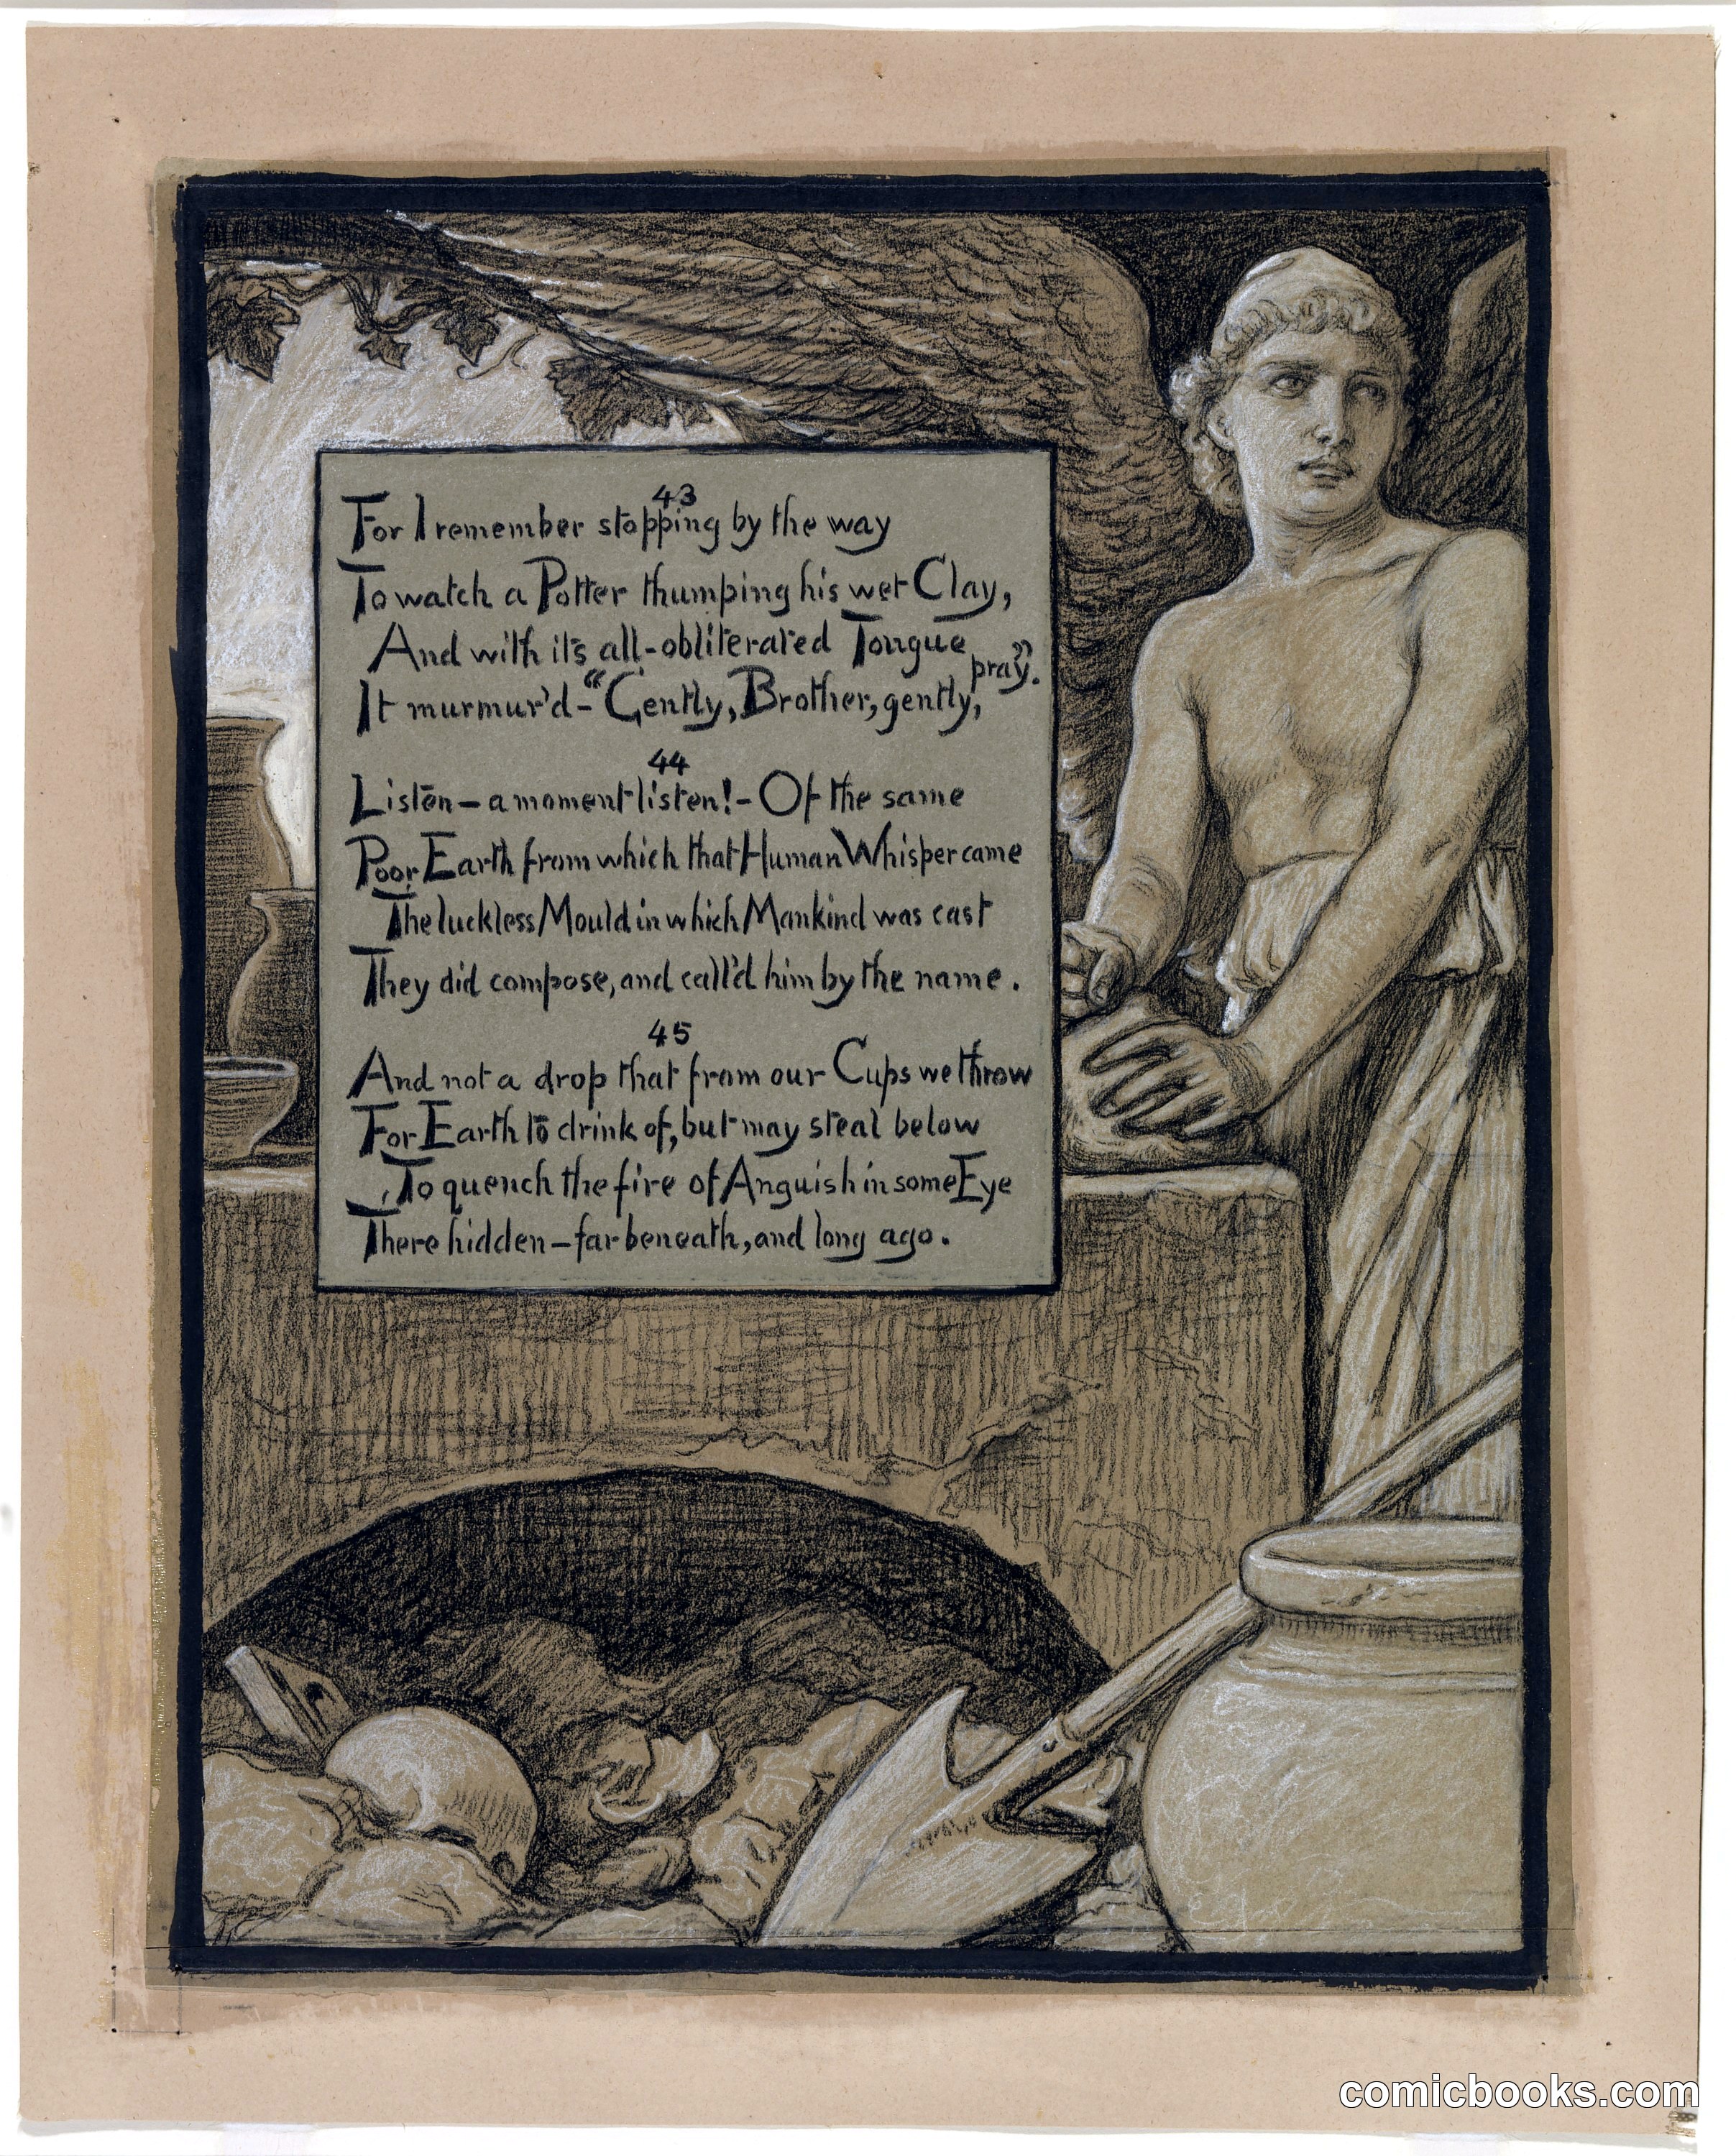 43
For I remember stopping by the way
To watch a Potter thumping his wet Clay,
And with its all-obliterated Tongue
It murmur'd - "Gently, Brother, gently, pray."
44
Listen - a moment listen! - Of the same
Poor Earth from which that Human Whisper came
The luckless Mould in which Mankind was cast
They did compose, and call'd him by the name.
45
And not a drop that from our Cups we throw
For Earth to drink of, but may steal below
To quench the fire of Anguish in some Eye
There hidden - far beneath, and long ago.
comicbooks.com